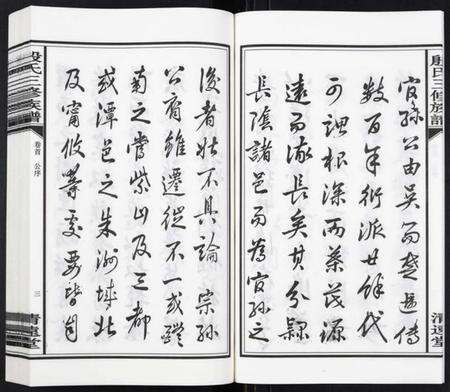 殷氏三修族譜
清遠堂
官孫公由吳而楚遞傳
數百年衍派廿餘代
可謂根深而葉茂源
遠而流長矣其分隸
長陰諸邑而為官孫之
後者姑不具論宗孫
公裔雖遷徙不一或醴
之當紫山及三都
或潭邑之朱洲城北
及甯攸等處要皆自
殷氏三修族譜
卷首 公序
三
清遠堂